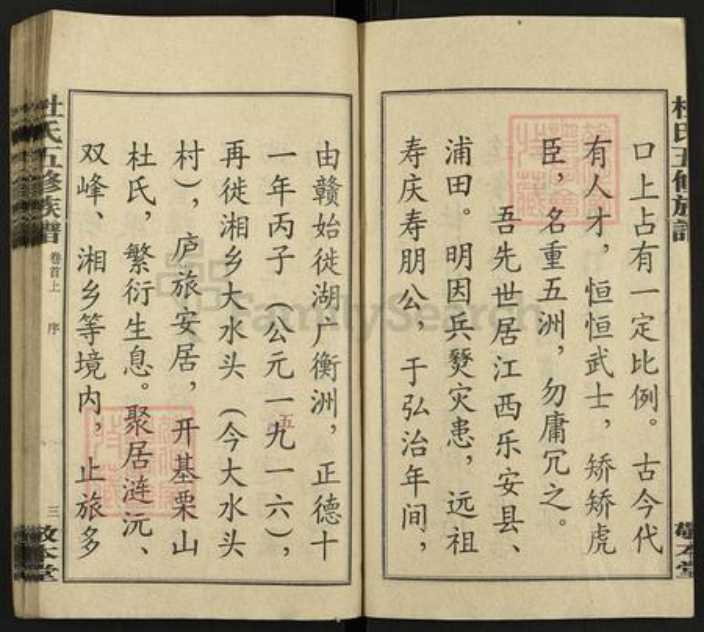 口上占有一定比例。古今代
有人才，恒恒武士，矫矫虎
臣，名重五洲，勿庸冗之。
吾先世居江西乐安县、
浦田。明因兵燹灾患，远祖
寿庆寿朋公，于弘治年间，
由赣始徙湖广衡洲，正德十
一年丙子（公元一九一六），
五
再徙湘乡大水头（今大水头
村），庐旅安居，开基栗山
杜氏，繁衍生息。聚居涟沅、
双峰、湘乡等境内，止旅多
杜氏五修族谱
卷首上 序
三
敬本堂
杜氏五修族譜
敬本堂
FamilySearch